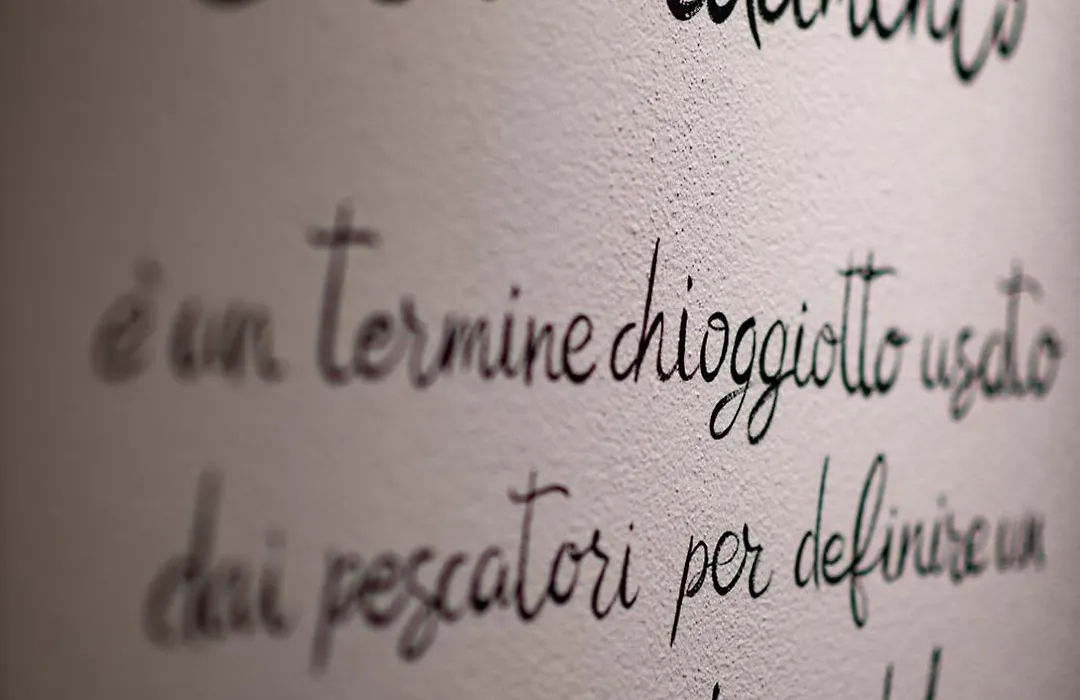 è un termine chioggiotto usato
dai pescatori per definire un